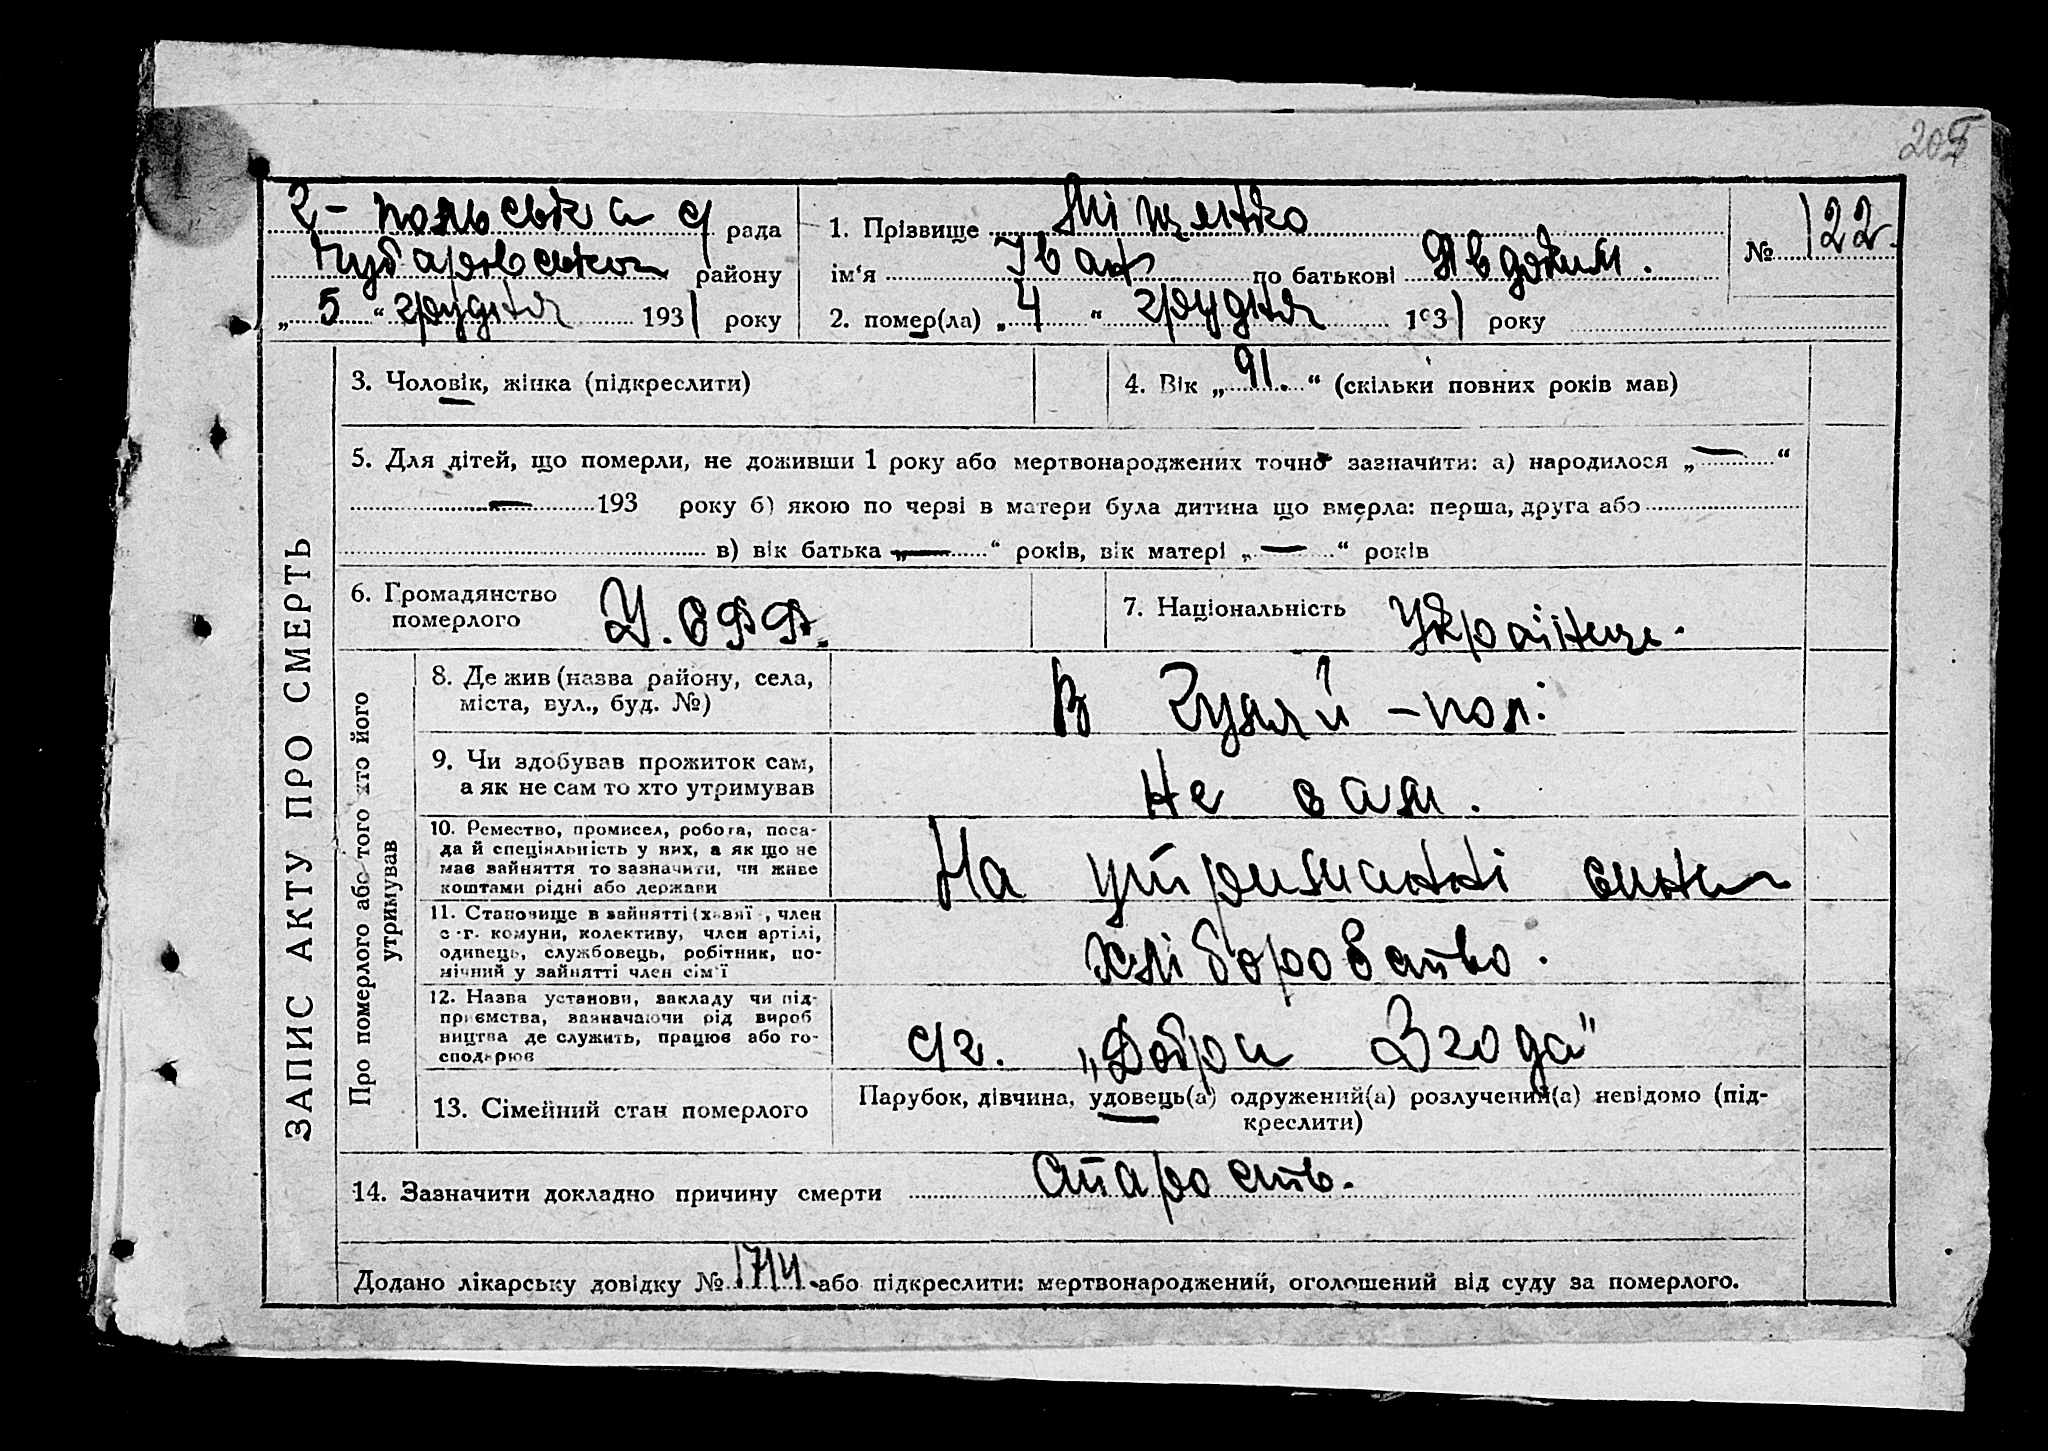 205
Г-польська с/ рада
Чубарівського району
„ 5 “ грудня 1931 року
1. Прізвище Міщенко
ім‘я Іван по батькові Явдоким.
2. помер(ла) „ 4 “ грудня 1931 року
№ 122.
ЗАПИС АКТУ ПРО СМЕРТЬ
3. Чоловік, жінка (підкреслити)
4. Вік „ 91. “ (скільки повних років мав)
5. Для дітей, що померли, не доживши 1 року або мертвонароджених точно зазначити: а) народилося „ — “
— 193 року б) якою по черзі в матери була дитина що вмерла: перша, друга або
в) вік батька „ — “ років, вік матері „ — “ років
6. Громадянство
померлого У.СРР.
7. Національність Українець.
Про померлого або того хто його
утримував
8. Де жив (назва району, села,
міста, вул., буд. №)
В Гуляй-полі
9. Чи здобував прожиток сам,
а як не сам то хто утримував
Не сам.
10. Ремество, промисел, робота, поса-
да й спеціяльність у них, а як що не
має зайняття то зазначити, чи живе
коштами рідні або держави
На утриманні сина
11. Становище в зайнятті (хазяї, член
с.-г. комуни, колективу, член артілі,
одинець, службовець, робітник, по-
мічний у зайнятті член сім‘ї
хліборобство.
12. Назва установи, закладу чи під-
приємства, зазначаючи рід вироб
ництва де служить, працює або го-
сподарює
с/г. „Добра Згода"
13. Сімейний стан померлого
Парубок, дівчина, удовець(а) одружений(а) розлучений(а) невідомо (під-
креслити)
14. Зазначити докладно причину смерти Старость.
Додано лікарську довідку № 1714. або підкреслити: мертвонароджений, оголошений від суду за померлого.